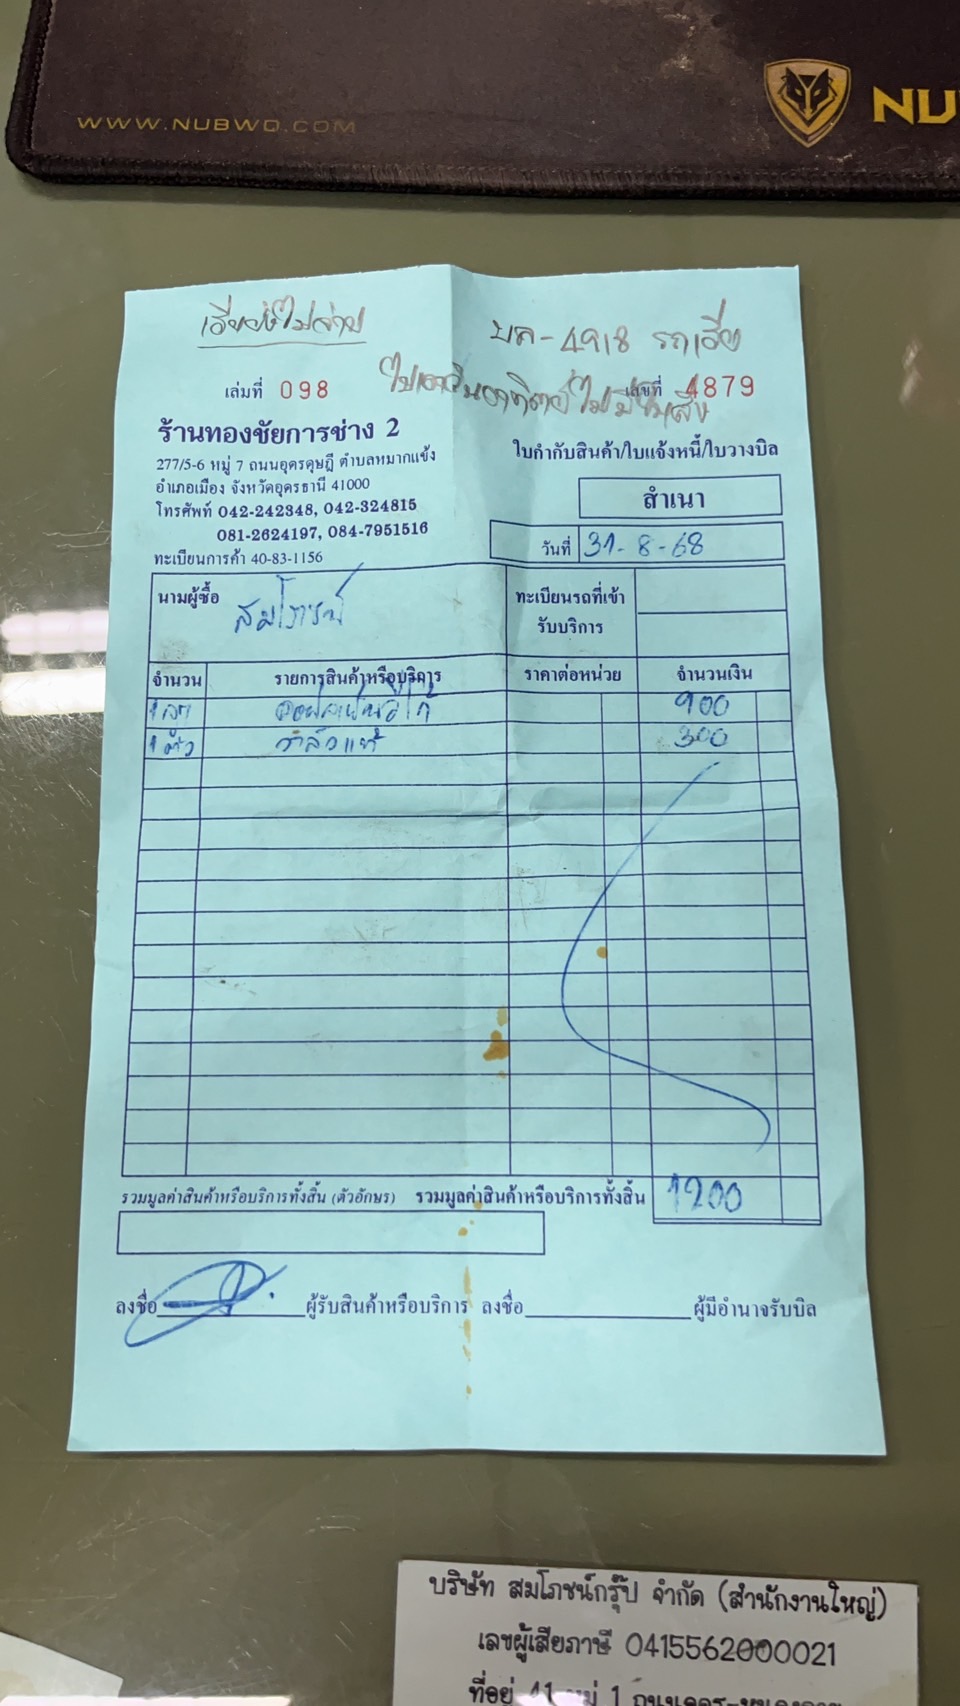 WWW.NUBWO.COM
NU
บล-4918 รถเฮีย
เล่มที่ 098
เลขที่ 4879
ร้านทองชัยการช่าง 2
277/5-6 หมู่ 7 ถนนอุดรดุษฎี ตำบลหมากแข้ง
อำเภอเมือง จังหวัดอุดรธานี 41000
โทรศัพท์ 042-242348, 042-324815
081-2624197, 084-7951516
ทะเบียนการค้า 40-83-1156
ใบกำกับสินค้า/ใบแจ้งหนี้/ใบวางบิล
สำเนา
วันที่ 31-8-68
นามผู้ซื้อ สมโภชน์
ทะเบียนรถที่เข้า
รับบริการ
จำนวน รายการสินค้าหรือบริการ ราคาต่อหน่วย จำนวนเงิน
1 ลูก 900
1 ตัว วาล์วแท้ 300
รวมมูลค่าสินค้าหรือบริการทั้งสิ้น (ตัวอักษร) รวมมูลค่าสินค้าหรือบริการทั้งสิ้น 1200
ลงชื่อ ผู้รับสินค้าหรือบริการ ลงชื่อ ผู้มีอำนาจรับบิล
บริษัท สมโภชน์กรุ๊ป จำกัด (สำนักงานใหญ่)
เลขผู้เสียภาษี 0415562000021
ที่อยู่ 41 หมู่ 1